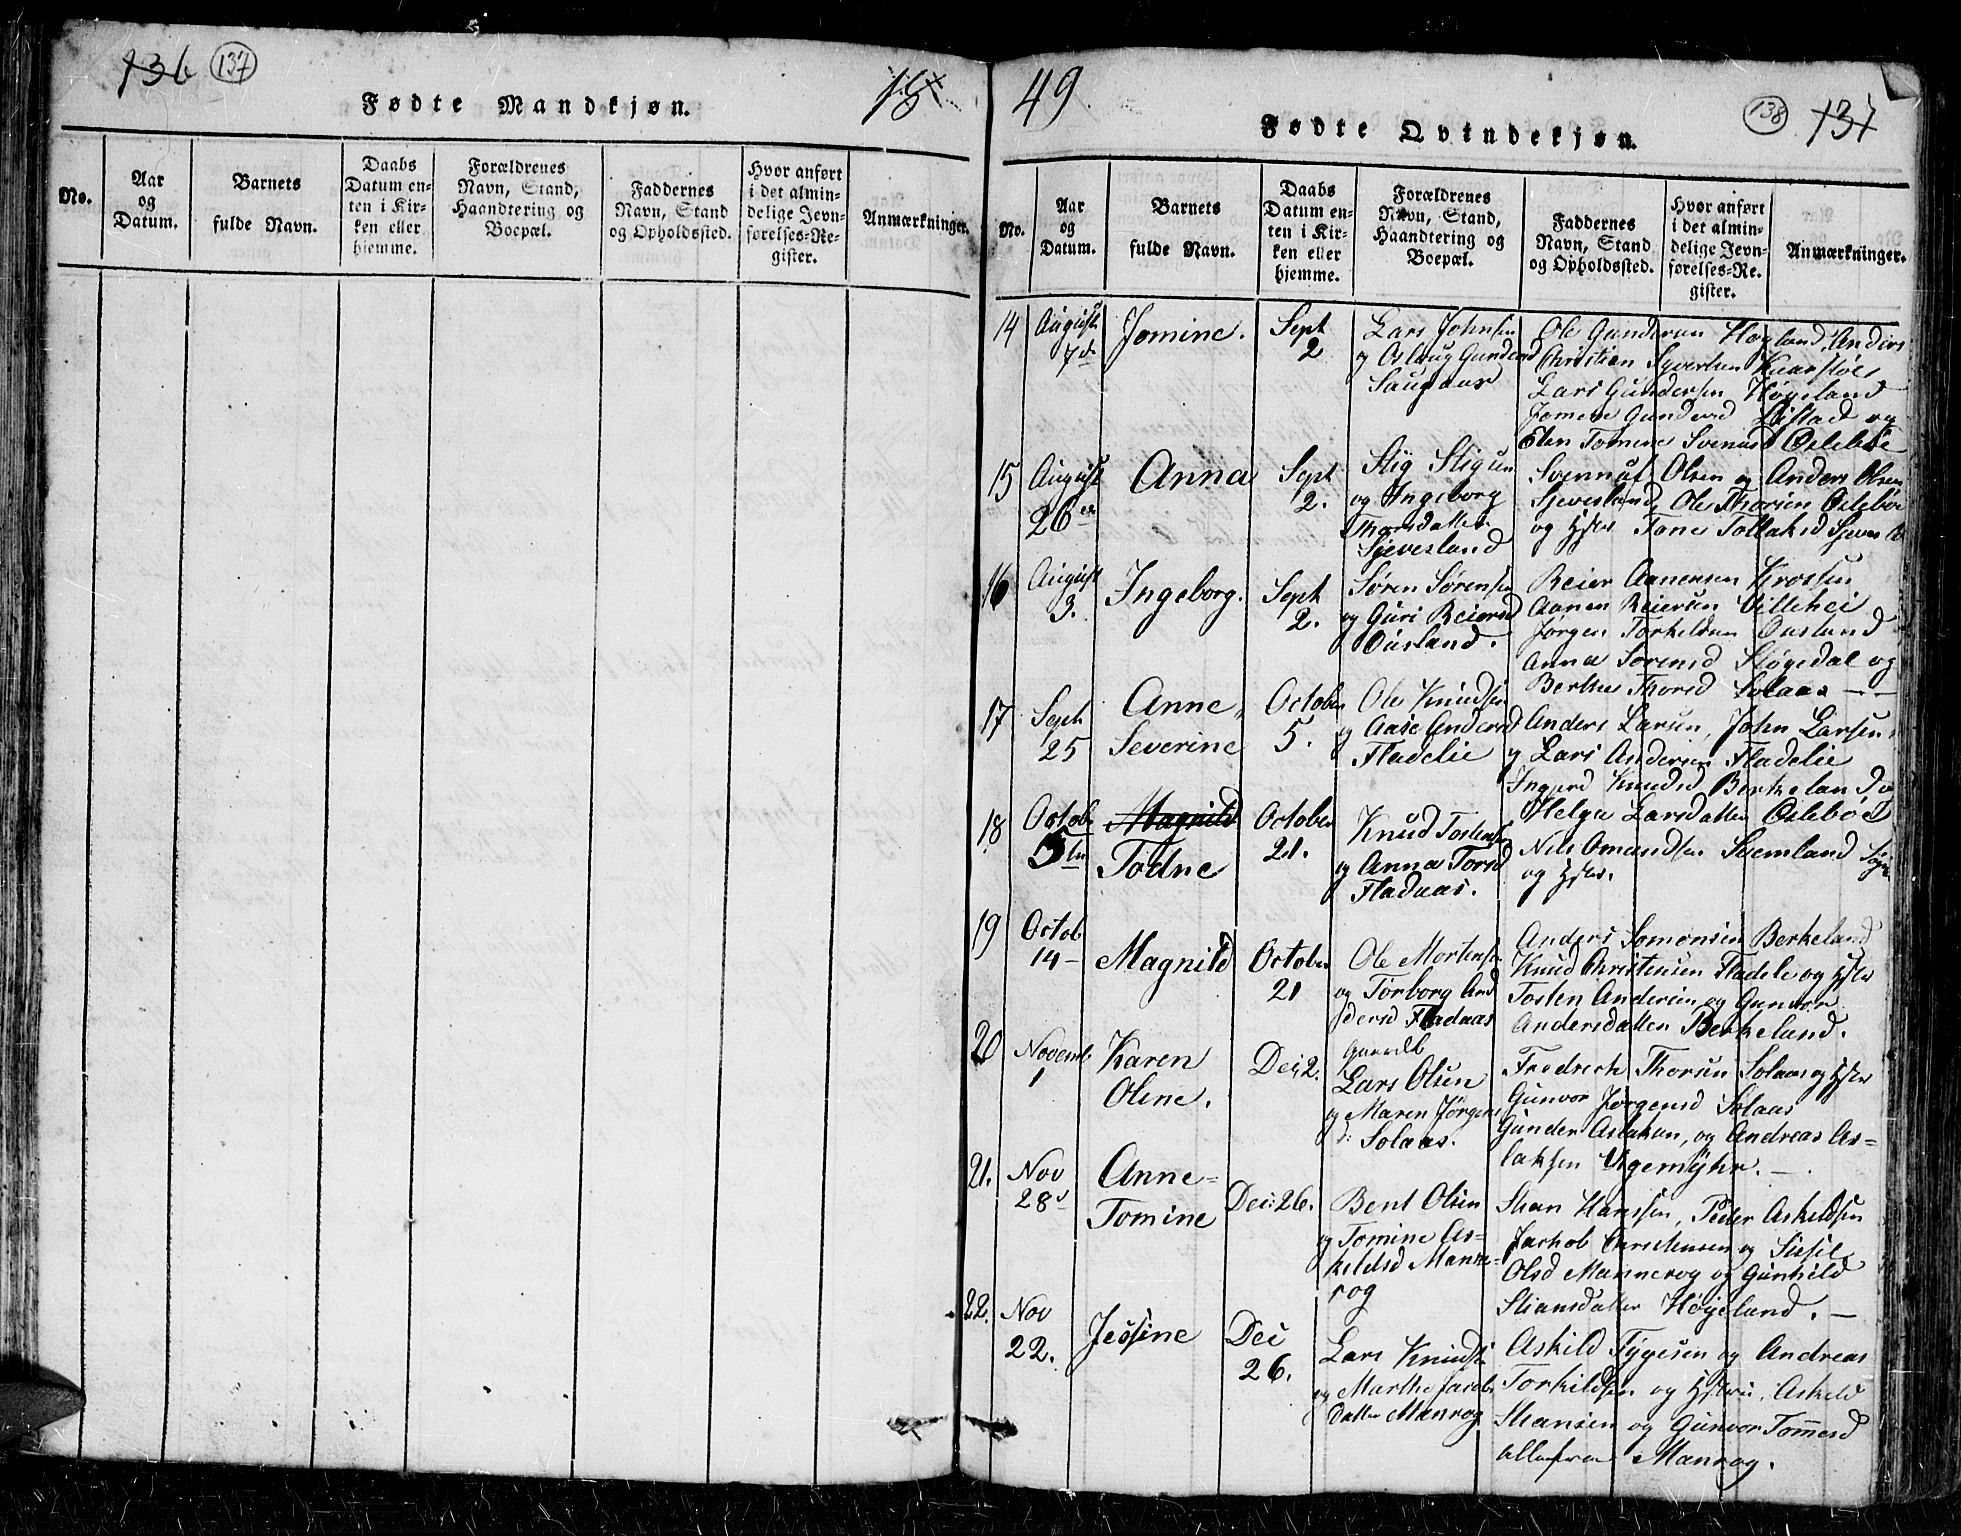 136 137
Fødte Mandkjøn.
18
No.
Aar
og
Datum.
Barnets
fulde Navn.
Daabs
Datum en-
ten i Kir-
ken eller
hjemme.
Forældrenes
Navn, Stand,
Haandtering og
Boepæl.
Faddernes
Navn, Stand
og Opholdssted.
Hvor anført
i det almin-
delige Jevn-
førelses-Re-
gister.
Anmærkninger.
49
Fødte Qvindekjøn.
138 137
No.
Aar
og
Datum.
Barnets
fulde Navn.
Daabs
Datum en-
ten i Kir-
ken eller
hjemme.
Forældrenes
Navn, Stand,
Haandtering og
Boepæl.
Faddernes
Navn, Stand
og Opholdssted.
Hvor anført
i det almin-
delige Jevn-
førelses-Re-
gister.
Anmærkninger.
14
August
7de
Jomine.
Sept
2
Lars Johnsen
og Oslaug Gundersd
Ole Gundersen Høgland, Anders
Christian Syvertsen
Lars Gundersen Høgeland
Jomine Gundersd og
Elen Tomine Svensd Oslebøe
15
August
26de
Anna
Sept
2.
Stig Stigsen
og Ingeborg
Thorsdatter
Sjevesland
Svennuf Olsen og Anders Olsen
Sjevesland, Ole Thorsen Oslebøe
og Hstr Tone Tollaksd
16
August
3.
Ingeborg.
Sept
2.
Søren Sørensen
og Guri Reiersd
Ousland.
Reier Aanensen Krossen
Aanen Reiersen Lillehei
Jørgen Torkelsen Ousland
Anna Sorensd Støgedal og
Berthe Thorsd Solaas — —
17
Sept
25
Anne
Severine
October
5.
Ole Knudsen
og Aase Andersd
Fladelie
Anders Larsen, John Larsen,
og Lars Andersen Fladelie
Knudsd Berkeland og
Helga Larsdatter Oslebøe
18
Octob
5te
Magnild
Todne
October
21.
Knud Tostensen
og Anna Torsd
Fladaas.
Nils Omundsen
og Hstr.
19
Octob
14 –
Magnild
October
21
Ole Mortensen
og Torborg And
dersd Fladaas
Anders Somonsen Berkeland
Knud Christensen Fladele og Hstr
Tosten Andersen og Gunvor
Andersdatter Berkeland.
20
Novemb
1
Karen
Olene.
Dec: 2.
Lars Olsen
og Maren Jørgens
d: Solaas.
Fredrech Thorsen Solaas og Hstr
Gunvor Jørgensd Solaas
Gunder Aslaksen, og Andreas As=
laksen Vigemyhr. –
21.
Nov
28d
Anne=
Tomine
Dec: 26.
Bent Olsen
og Tomine As=
kildsd Manne=
rog
Stian Hanssen, Peder Askildsen
Jachob Christensen og Sissil
Olsd Mannerog og Gunhild
Stiansdatter Høgeland. —
22.
Nov
22.
Jessine
Dec
26.
Lars Knudsen
og Marthe Jacobs
datter Manrog
Askild Tygesen og Andreas
Torkildsen og Hstru, Askild
Stiansen og Gunvor Tommesd
alle fra Manrog.